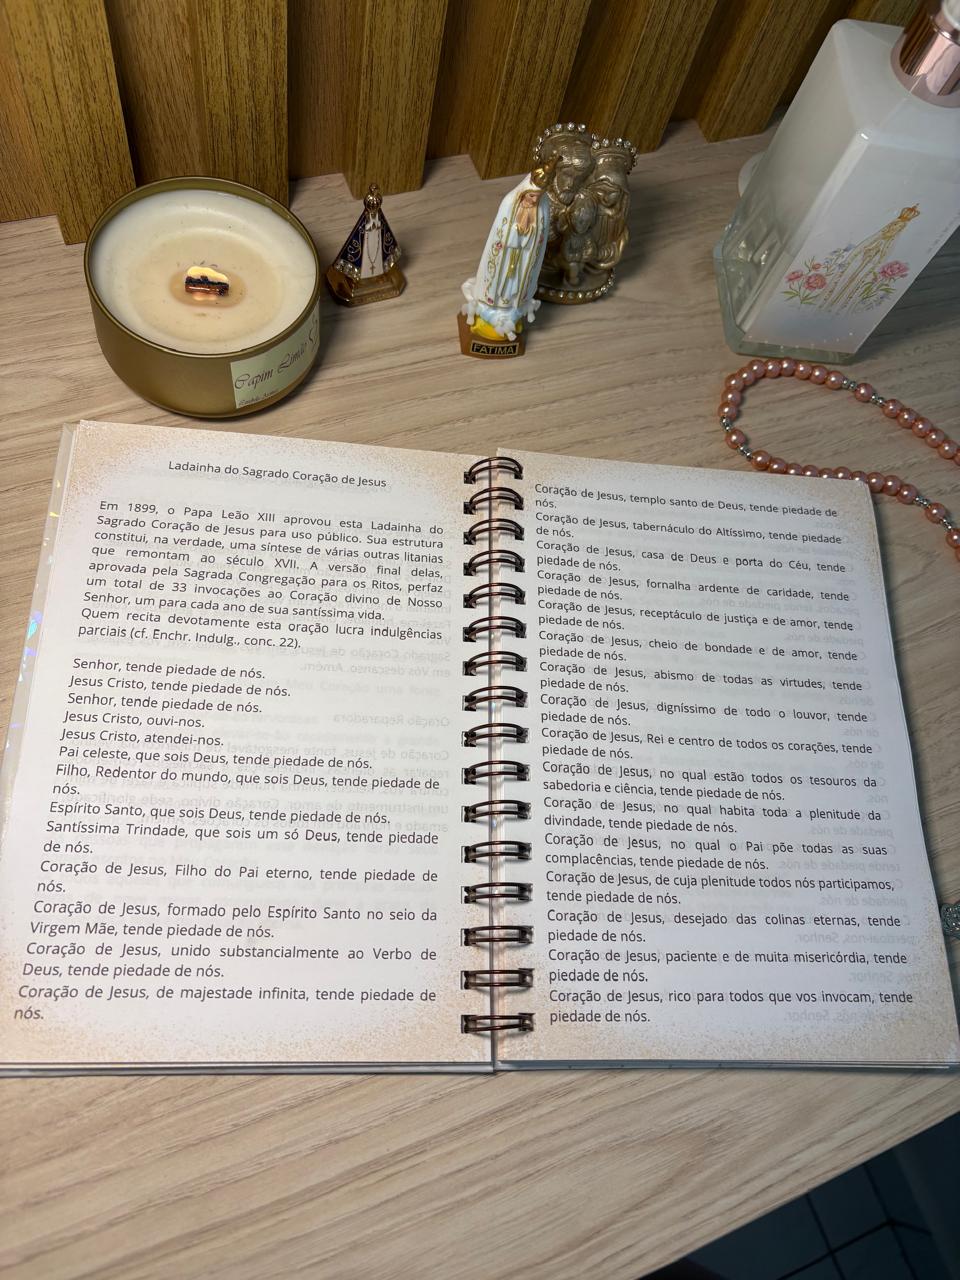 Capim Limão
FATIMA
Ladainha do Sagrado Coração de Jesus
Em 1899, o Papa Leão XIII aprovou esta Ladainha do
Sagrado Coração de Jesus para uso público. Sua estrutura
constitui, na verdade, uma síntese de várias outras litanias
que remontam ao século XVII. A versão final delas,
aprovada pela Sagrada Congregação para os Ritos, perfaz
um total de 33 invocações ao Coração divino de Nosso
Senhor, um para cada ano de sua santíssima vida.
Quem recita devotamente esta oração lucra indulgências
parciais (cf. Enchr. Indulg., conc. 22).
Senhor, tende piedade de nós.
Jesus Cristo, tende piedade de nós.
Senhor, tende piedade de nós.
Jesus Cristo, ouvi-nos.
Jesus Cristo, atendei-nos.
Pai celeste, que sois Deus, tende piedade de nós.
Filho, Redentor do mundo, que sois Deus, tende piedade de
nós.
Espírito Santo, que sois Deus, tende piedade de nós.
Santíssima Trindade, que sois um só Deus, tende piedade
de nós.
Coração de Jesus, Filho do Pai eterno, tende piedade de
nós.
Coração de Jesus, formado pelo Espírito Santo no seio da
Virgem Mãe, tende piedade de nós.
Coração de Jesus, unido substancialmente ao Verbo de
Deus, tende piedade de nós.
Coração de Jesus, de majestade infinita, tende piedade de
nós.
Coração de Jesus, templo santo de Deus, tende piedade de
nós.
Coração de Jesus, tabernáculo do Altíssimo, tende piedade
de nós.
Coração de Jesus, casa de Deus e porta do Céu, tende
piedade de nós.
Coração de Jesus, fornalha ardente de caridade, tende
piedade de nós.
Coração de Jesus, receptáculo de justiça e de amor, tende
piedade de nós.
Coração de Jesus, cheio de bondade e de amor, tende
piedade de nós.
Coração de Jesus, abismo de todas as virtudes, tende
piedade de nós.
Coração de Jesus, digníssimo de todo o louvor, tende
piedade de nós.
Coração de Jesus, Rei e centro de todos os corações, tende
piedade de nós.
Coração de Jesus, no qual estão todos os tesouros da
sabedoria e ciência, tende piedade de nós.
Coração de Jesus, no qual habita toda a plenitude da
divindade, tende piedade de nós.
Coração de Jesus, no qual o Pai põe todas as suas
complacências, tende piedade de nós.
Coração de Jesus, de cuja plenitude todos nós participamos,
tende piedade de nós.
Coração de Jesus, desejado das colinas eternas, tende
piedade de nós.
Coração de Jesus, paciente e de muita misericórdia, tende
piedade de nós.
Coração de Jesus, rico para todos que vos invocam, tende
piedade de nós.